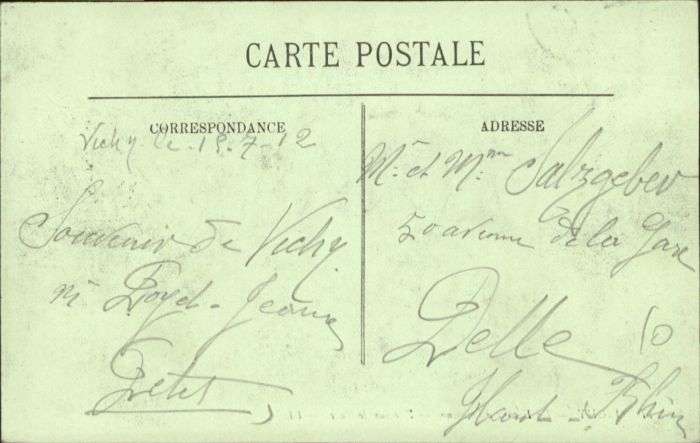 CARTE POSTALE
CORRESPONDANCE
Vichy le 18.7-12
Souvenir de Vichy
ADRESSE
Mr. et Mme Salzgeber
50 avenue de la Gare
Delle
Haut-Rhin
10